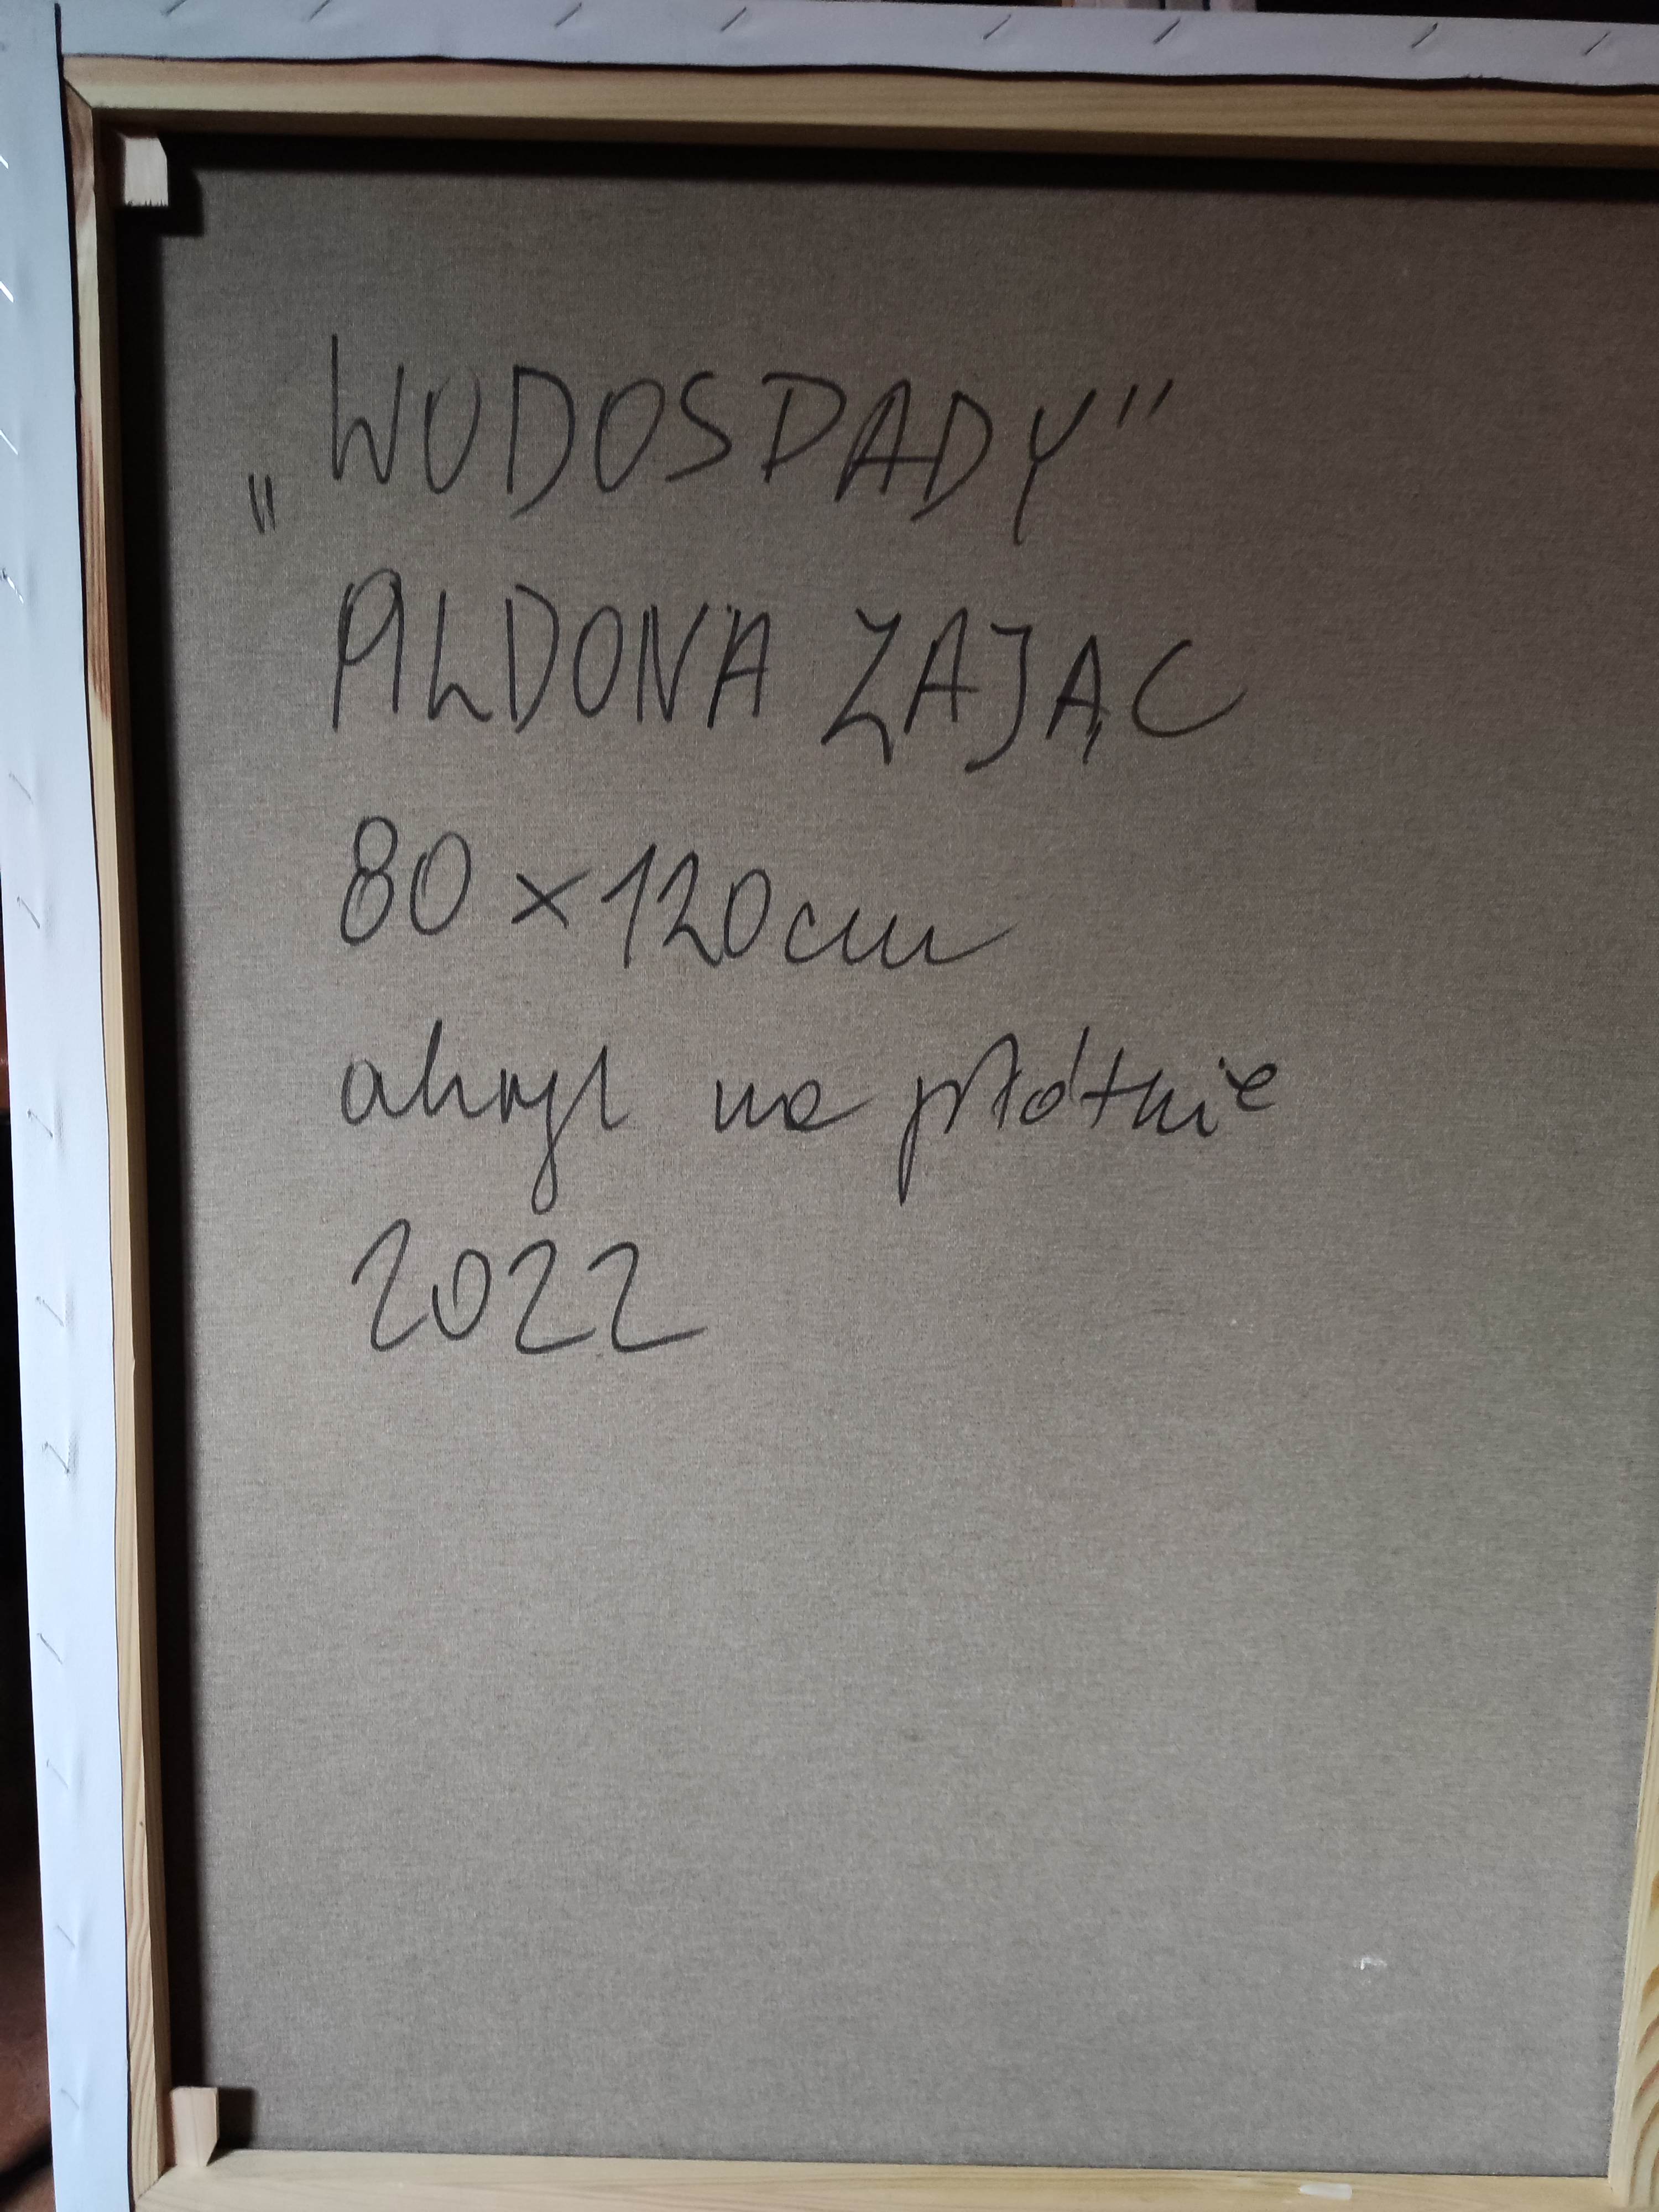 „WODOSPADY”
ALDONA ZAJĄC
80 x 120 cm
akryl na płótnie
2022